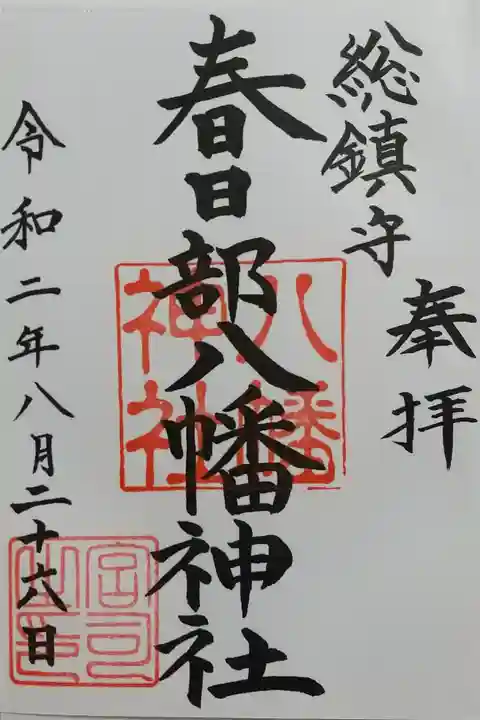 奉拝
総鎮守
春日部八幡神社
八幡
神社
令和二年八月二十六日
宮司
之印